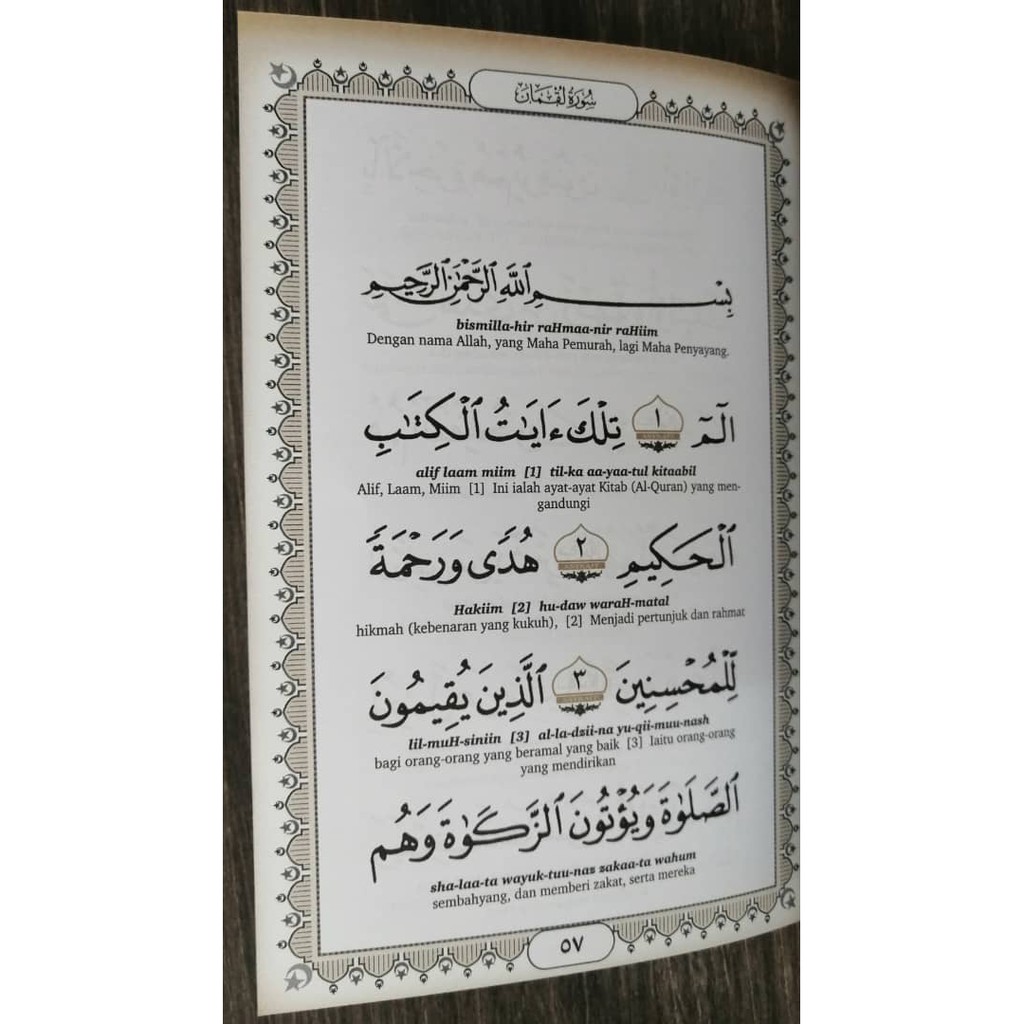 سُورَةُ لُقْمَان
بِسْمِ ٱللَّهِ ٱلرَّحْمَٰنِ ٱلرَّحِيمِ
bismilla-hir raHmaa-nir raHiim
Dengan nama Allah, yang Maha Pemurah, lagi Maha Penyayang.
الٓمٓ ١ تِلْكَ ءَايَٰتُ ٱلْكِتَٰبِ
alif laam miim [1] til-ka aa-yaa-tul kitaabil
Alif, Laam, Miim [1] Ini ialah ayat-ayat Kitab (Al-Quran) yang men-
gandungi
ٱلْحَكِيمِ ٢ هُدًى وَرَحْمَةً
Hakiim [2] hu-daw waraH-matal
hikmah (kebenaran yang kukuh), [2] Menjadi pertunjuk dan rahmat
لِّلْمُحْسِنِينَ ٣ ٱلَّذِينَ يُقِيمُونَ
lil-muH-siniin [3] al-la-dzii-na yu-qii-muu-nash
bagi orang-orang yang beramal yang baik [3] Iaitu orang-orang
yang mendirikan
ٱلصَّلَوٰةَ وَيُؤْتُونَ ٱلزَّكَوٰةَ وَهُم
sha-laa-ta wayuk-tuu-naz zakaa-ta wahum
sembahyang, dan memberi zakat, serta mereka
٥٧